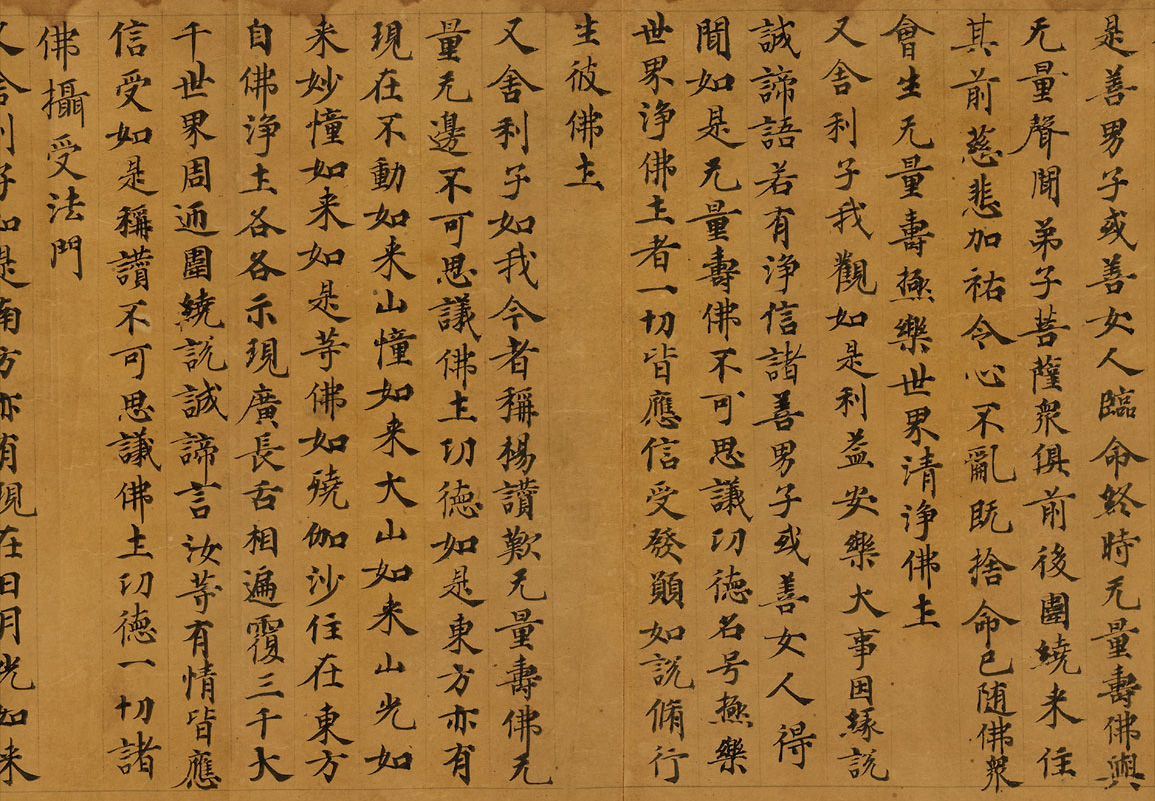 是善男子或善女人臨命終時无量壽佛與
无量聲聞弟子菩薩衆俱前後圍繞来住
其前慈悲加祐令心不亂既捨命已随佛衆
會生无量壽極樂世界清淨佛土
又舍利子我觀如是利益安樂大事因緣説
誠諦語若有淨信諸善男子或善女人得
聞如是无量壽佛不可思議功德名号極樂
世界淨佛土者一切皆應信受發願如説脩行
生彼佛土
又舍利子如我今者稱楊讚歎无量壽佛无
量无邊不可思議佛土功德如是東方亦有
現在不動如来山幢如来大山如来山光如
来妙幢如来如是等佛如殑伽沙住在東方
自佛淨土各各示現廣長舌相遍覆三千大
千世界周迊圍繞説誠諦言汝等有情皆應
信受如是稱讚不可思議佛土功德一切諸
佛攝受法門
又舍利子如是南方亦有現在日月光如来